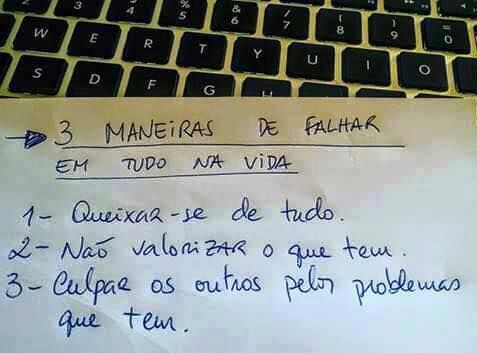 3 4 % 5 & 6 / 7 ( 8 ) 9 = 0
W E R T Y U I O
S D F G
3 MANEIRAS DE FALHAR
EM TUDO NA VIDA
1- Queixar-se de tudo.
2- Não valorizar o que tem.
3- Culpar os outros pelos problemas
que tem.